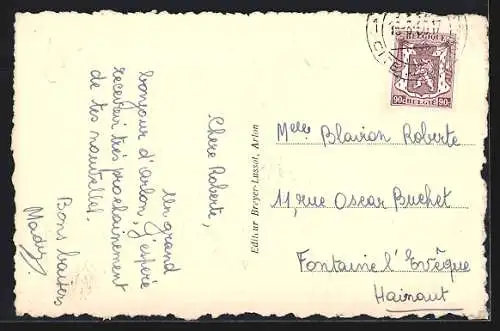 Chère Roberte,
Un grand
bonjour d'arlon, j'espère
recevoir très prochainement
de tes nouvelles.
Bons baisers
Mady
Editeur Breyer-Lussot, Arlon
BELGIQUE
90c BELGIË 90c
Melle Blairon Roberte
11, rue Oscar Buchet
Fontaine l'Evêque
Hainaut